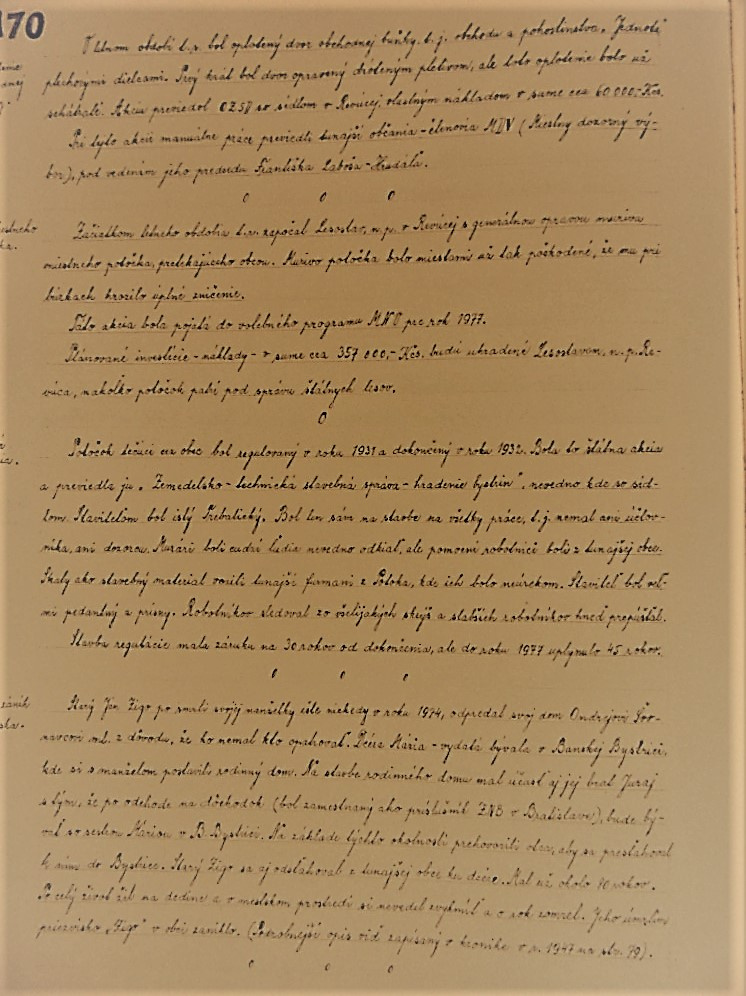 170
V letnom období t.r. bol oplotený dvor obchodnej buňky, t.j. obchodu a pohostinstva „Jednota"
plechovými dielcami. Prvý krát bol dvor opravený drôteným pletivom, ale toto oplotenie bolo už
schátralé. Akciu previedol OZSD so sídlom v Revúcej vlastným nákladom v sume cca 60.000,- Kčs.
Pri tejto akcii manuálne práce previedli tunajší občania - členovia MDV (Miestny dozorný vý-
bor), pod vedením jeho predsedu Františka Laboša - Hudáľa.
o o o
Začiatkom letného obdobia t.r. započal Lesostav, n.p. v Revúcej s generálnou opravou muriva
miestneho potôčka, pretekajúceho obcou. Murivo potôčka bolo miestami už tak poškodené, že mu pri
búrkach hrozilo úplné zničenie.
Táto akcia bola pojatá do volebného programu MNV pre rok 1977.
Plánované investície - náklady - v sume cca 357 000,- Kčs. budú uhradené Lesostavom, n.p. Re-
vúca, nakoľko potôčok patrí pod správu štátnych lesov.
o
Potôčok tečúci cez obec bol regulovaný v roku 1931 a dokončený v roku 1932. Bola to štátna akcia
a previedla ju „Zemedelsko - technická stavebná správa - hradenie bystrín", nevedno kde so síd-
lom. Staviteľom bol istý Trebatický. Bol len sám na stavbe na všetky práce, t.j. nemal ani účtov-
níka, ani dozorcu. Murári boli cudzí ľudia nevedno odkiaľ, ale pomocní robotníci boli z tunajšej obce.
Skaly ako stavebný materiál vozili tunajší furmani z Potoka, kde ich bolo neúrekom. Staviteľ bol veľ-
mi pedantný a prísny. Robotníkov sledoval zo všelijakých skrýš a slabších robotníkov hneď prepúšťal.
Stavba regulácie mala záruku na 30 rokov od dokončenia, ale do roku 1977 uplynulo 45 rokov.
o o o
Starý Ján Žigo po smrti svojej manželky ešte niekedy v roku 1974, odpredal svoj dom Ondrejovi
ml. z dôvodu, že ho nemal kto opatrovať. Dcéra Mária - vydatá bývala v Banskej Bystrici,
kde si s manželom postavili rodinný dom. Na stavbe rodinného domu mal účasť aj jej brat Juraj
s tým, že po odchode na dôchodok (bol zamestnaný ako príslušník ZNB v Bratislave), bude bý-
vať so sestrou Máriou v B. Bystrici. Na základe týchto okolností prehovorili otca, aby sa presťahoval
k nim do Bystrice. Starý Žigo sa aj odsťahoval z tunajšej obce ku dcére. Mal už okolo rokov.
Po celý život žil na dedine a v mestskom prostredí si nevedel zvyknúť a o rok zomrel. Jeho úmrtím
priezvisko „Žigo" v obci zaniklo. (Podrobnejší opis viď zápisnej v kronike v r. 1947 na str. 79).
o o o